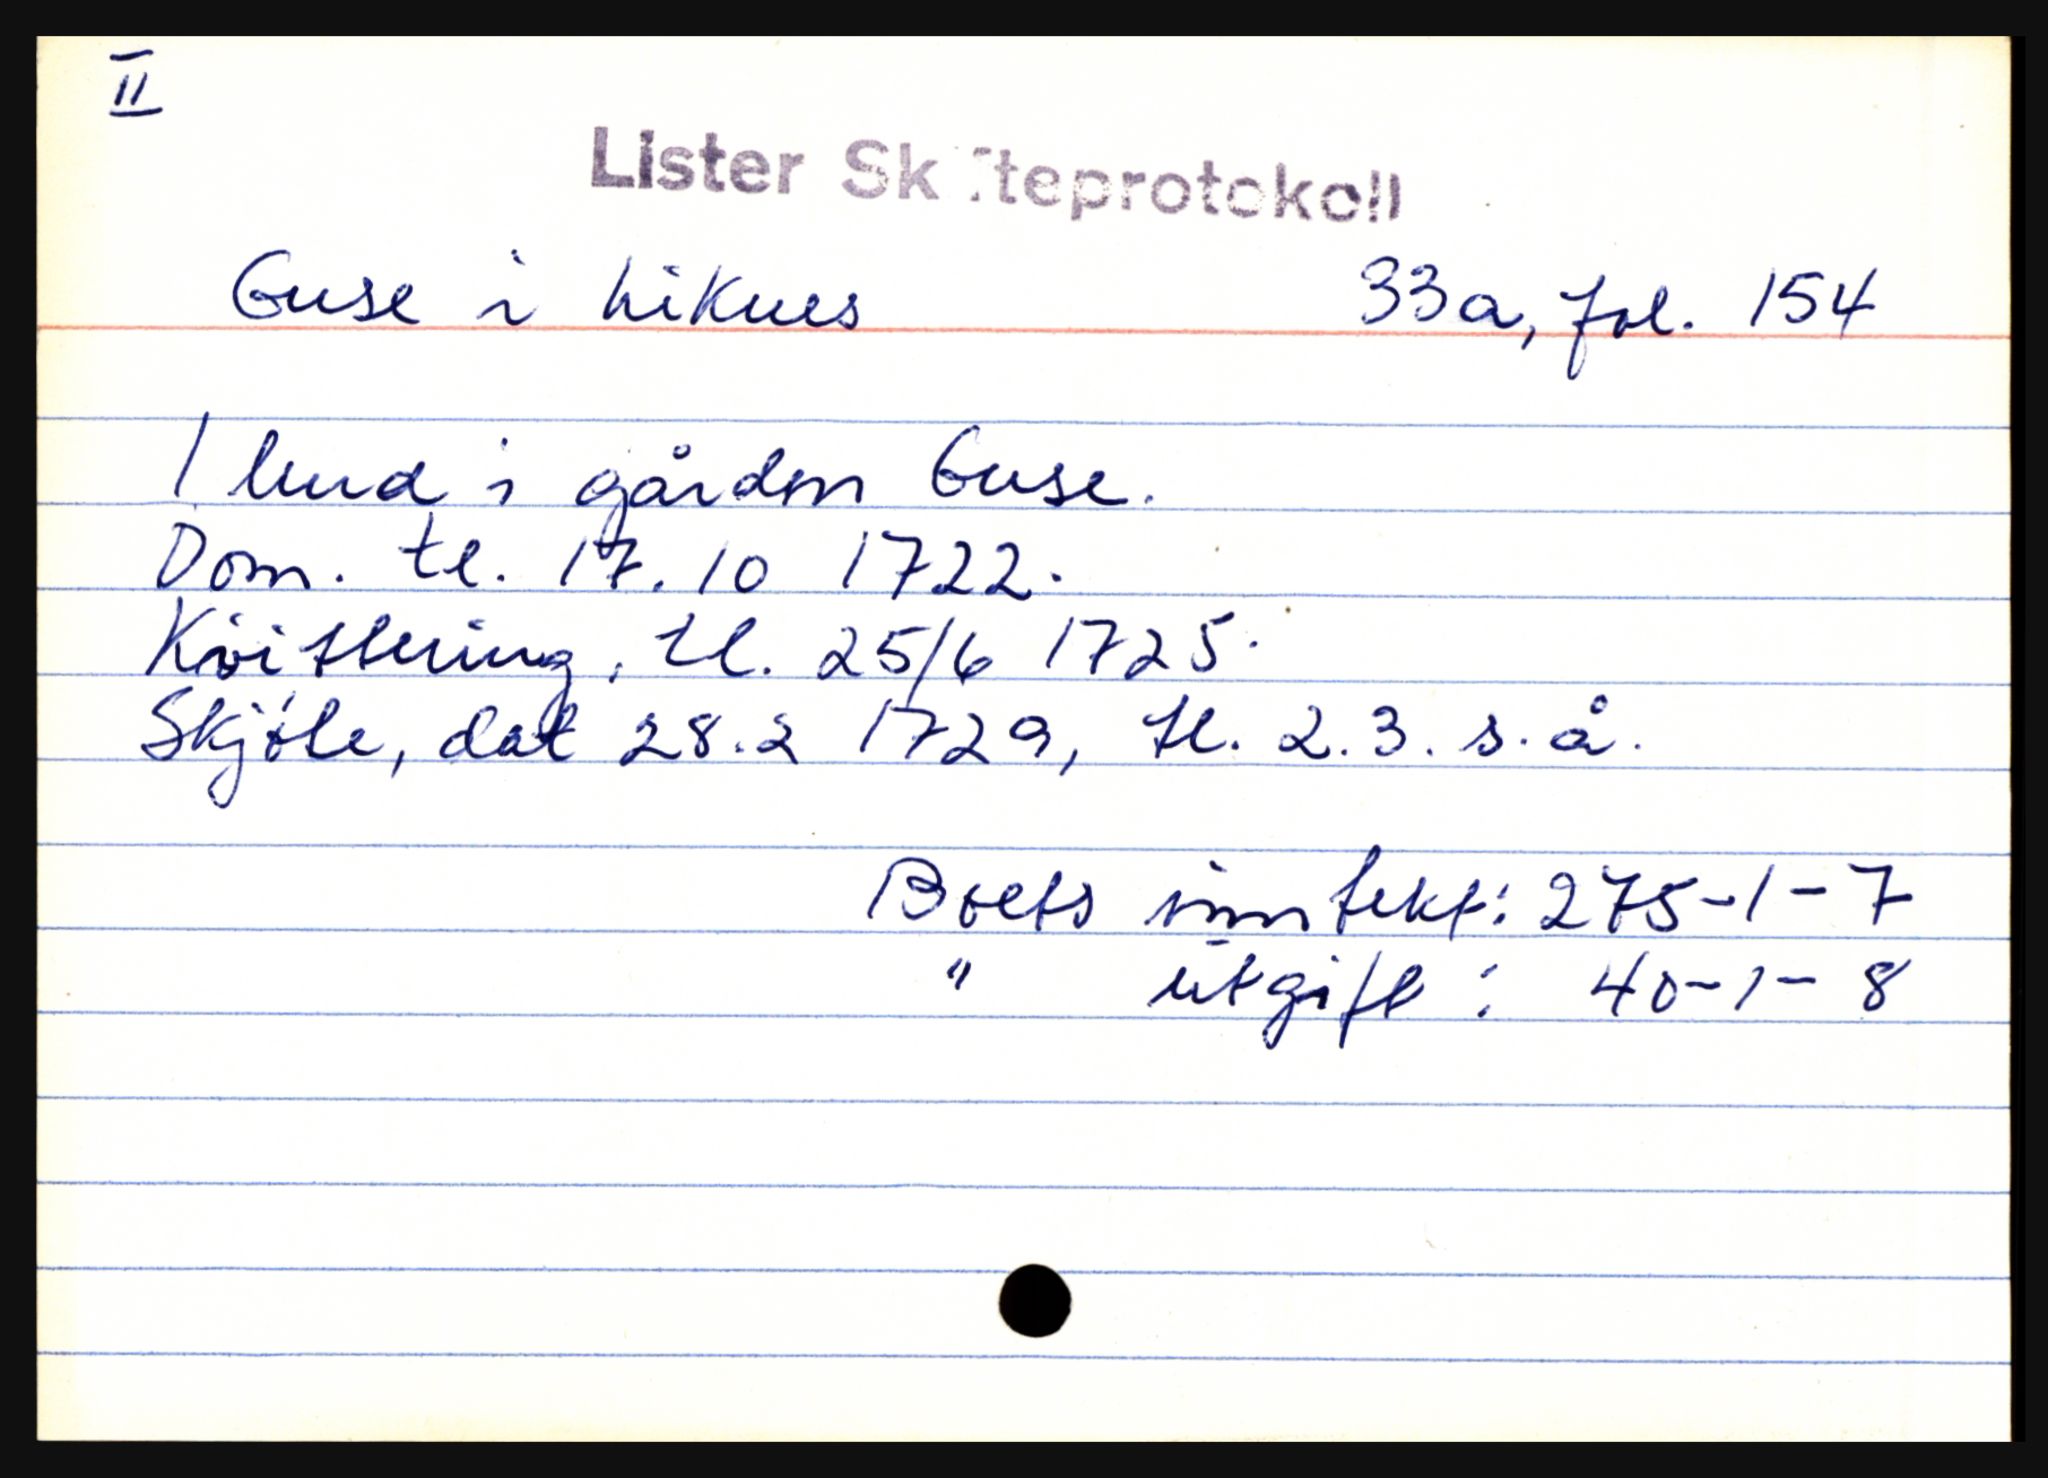 II
Lister Skifteprotokoll
Guse i Liknes 33a, fol. 154
1 hud i gården Guse.
Dom. tl. 17.10 1722.
Kvittering, tl. 25/6 1725.
Skjöte, dat 28.2 1729, tl. 2.3. s.å.
Boets inntekt: 275-1-7
" utgift: 40-1-8